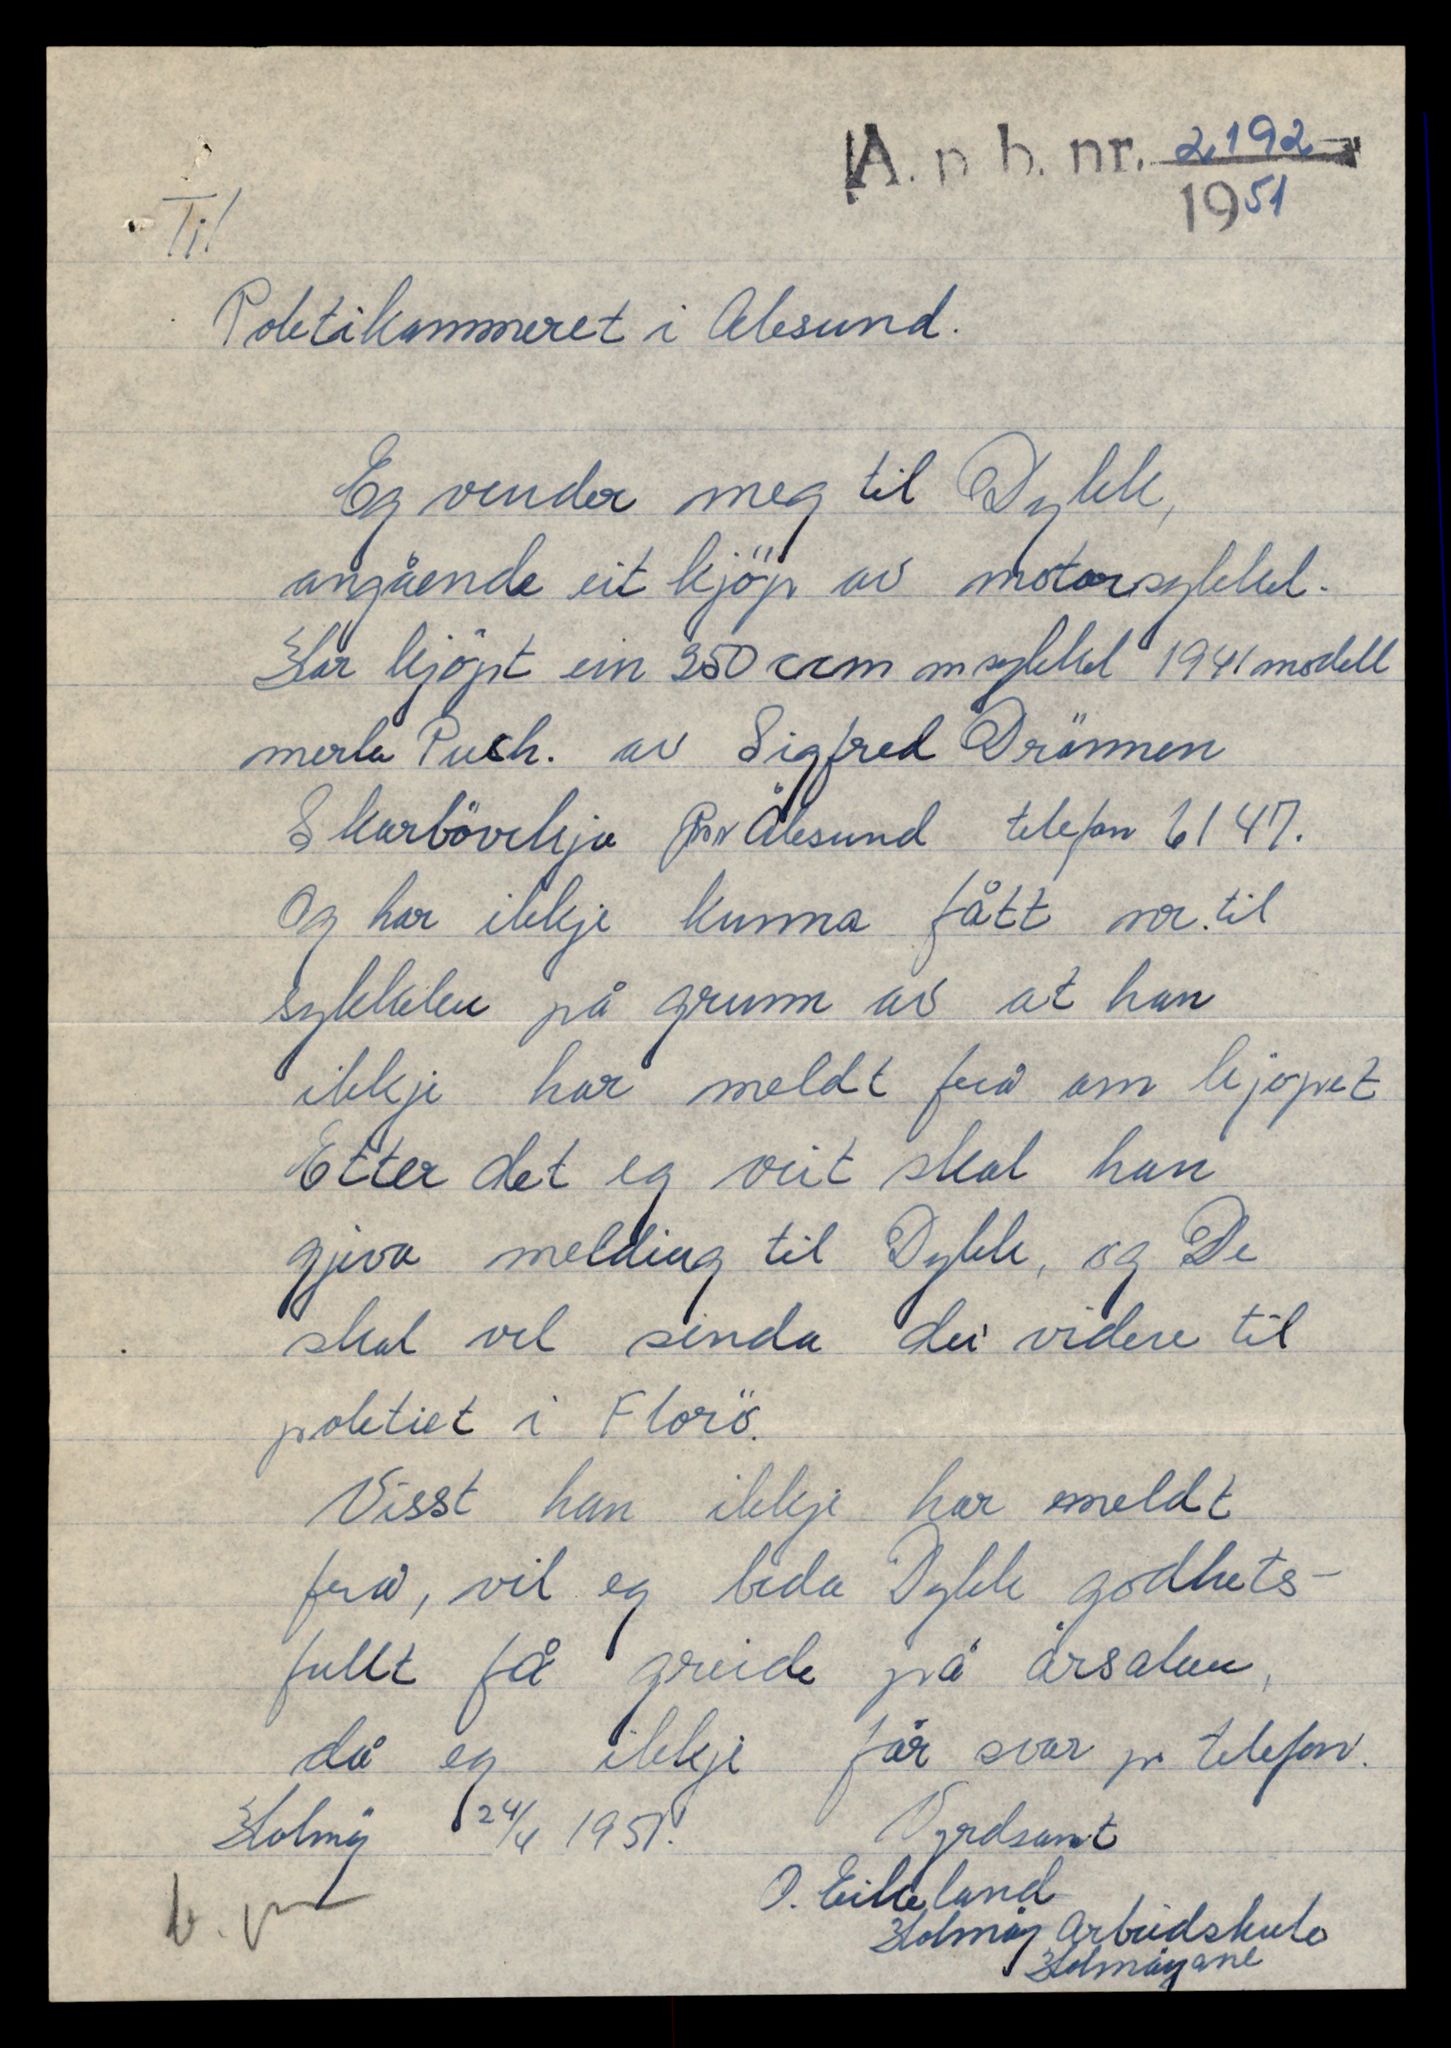 A. p b. nr. 2192
1951
Til
Poletikammeret i Ålesund.
Eg vender meg til Dykk,
angående eit kjöp av motorsykkel.
Har kjöpt ein 350 ccm m sykkel 1941 modell
merke Puch. av Sigfred Drönnen
Skarbövikja Ålesund telefon 6147.
Og har ikkje kunna fått nr. til
sykkelen på grunn av at han
ikkje har meldt frå om kjöpet
Etter det eg veit skal han
gjeva melding til Dykk, og De
skal vel senda dei videre til
poletiet i Florö.
Visst han ikkje har meldt
frå, vil eg beda Dykk godhets-
fullt få greide på årsaken,
då eg ikkje får svar pr telefon.
Holmöy 24/4 1951.
Vyrdsamt
O. Eikeland
Holmöy Arbeidskule
Holmöyane